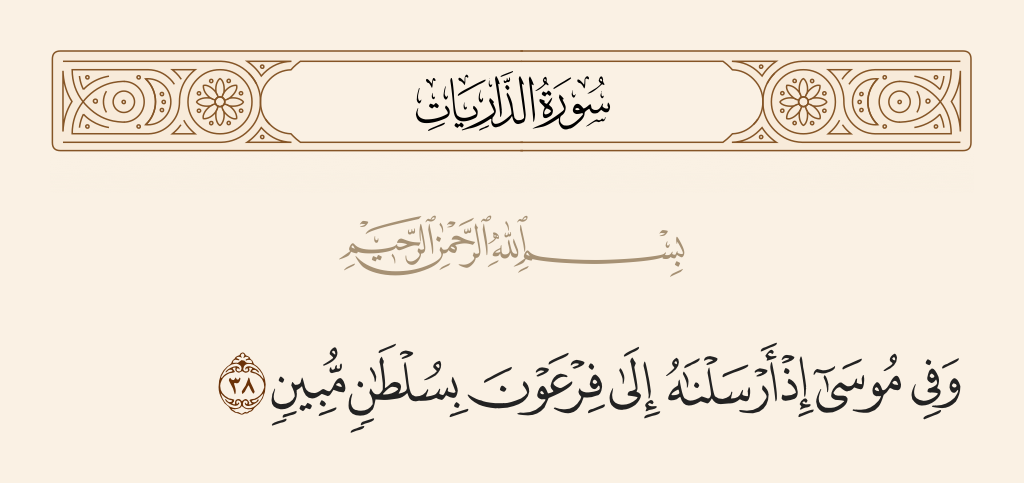 سُورَةُ الذَّارِيَاتِ
بِسْمِ ٱللَّهِ ٱلرَّحْمَٰنِ ٱلرَّحِيمِ
وَفِى مُوسَىٰٓ إِذْ أَرْسَلْنَٰهُ إِلَىٰ فِرْعَوْنَ بِسُلْطَٰنٍ مُّبِينٍ ٣٨